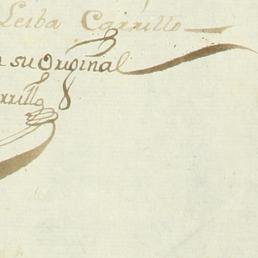 Leiba Carrillo
su Original
rrillo